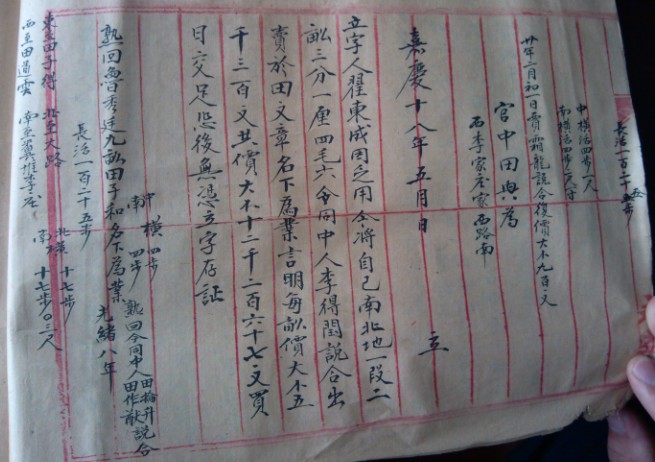 長活一百二十五步
中橫活四步一尺
南橫活四步一尺八寸
廿年二月初一日賣霜龍説合復價大小九百文
官中田興為
西李家庄家西路南
嘉慶十八年五月日 立
立字人翟東成因乏用今將自己南北地一段二
畝三分一厘四毛六今同中人李得閏説合出
賣於田文章名下為業言明每畝價大小五
千三百文共價大小十二千二百六十七文買
日交足恐後無憑立字存証
中橫四步
南 四步
熟回今同中人田拾升田作猷説合
熟回魯秀廷九畝田子和名下為業 光緒八年
長活一百二十五步
北橫十七步
南 十七步〇三尺
東至田子得 北至大路
西至田道雲 南至李庄